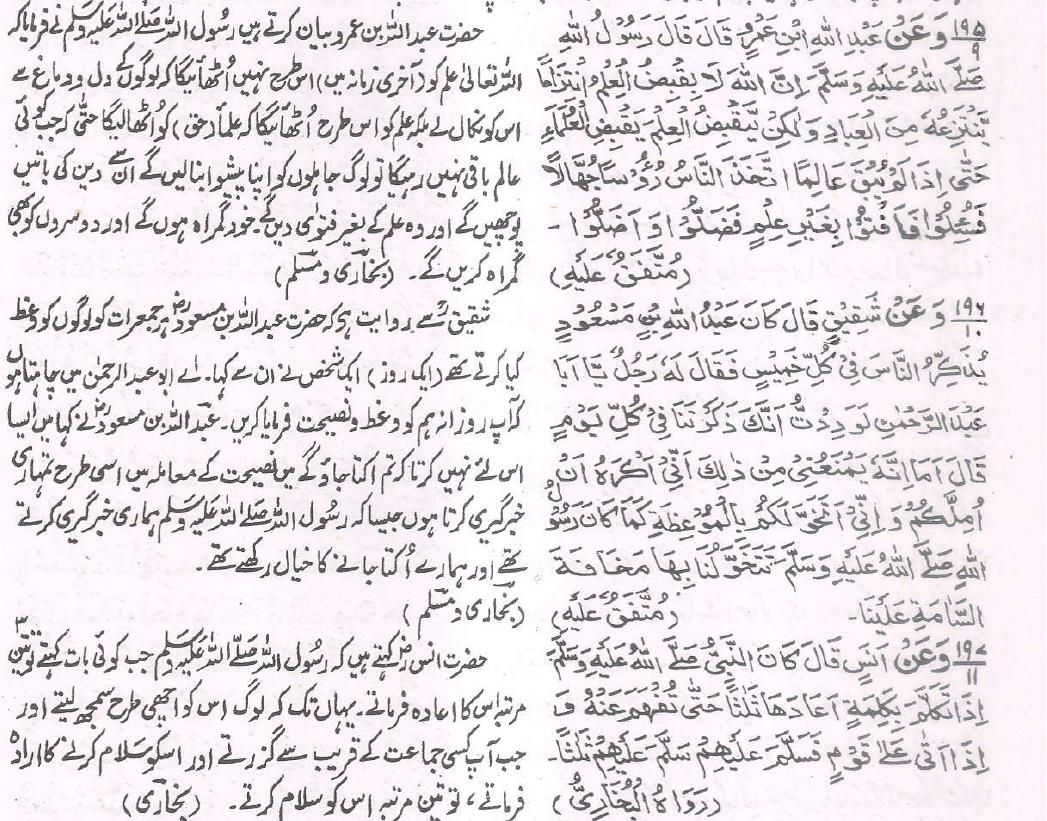 ۱۹۵/۹ وَعَنْ عَبْدِ اللهِ ابْنِ عَمْرٍو قَالَ قَالَ رَسُوْلُ اللهِ
صَلَّے اللهُ عَلَيْهِ وَسَلَّمَ اِنَّ اللهَ لَا يَقْبِضُ الْعِلْمَ اِنْتِزَاعًا
يَّنْتَزِعُهٗ مِنَ الْعِبَادِ وَلٰكِنْ يَّقْبِضُ الْعِلْمَ بِقَبْضِ الْعُلَمَاءِ
حَتّٰى اِذَا لَمْ يُبْقِ عَالِمًا اتَّخَذَ النَّاسُ رُؤُسًا جُهَّالًا
فَسُئِلُوْا فَاَفْتَوْا بِغَيْرِ عِلْمٍ فَضَلُّوْا وَ اَضَلُّوْا -
(مُتَّفَقٌ عَلَيْهِ)
۱۹۶/۱۰ وَعَنْ شَقِيْقٍ قَالَ كَانَ عَبْدُ اللهِ بْنُ مَسْعُوْدٍ
يُذَكِّرُ النَّاسَ فِيْ كُلِّ خَمِيْسٍ فَقَالَ لَهٗ رَجُلٌ يَّا اَبَا
عَبْدِ الرَّحْمٰنِ لَوَدِدْتُّ اَنَّكَ ذَكَّرْتَنَا فِيْ كُلِّ يَوْمٍ
قَالَ اَمَا اِنَّهٗ يَمْنَعُنِيْ مِنْ ذٰلِكَ اَنِّيْ اَكْرَهُ اَنْ
اُمِلَّكُمْ وَ اِنِّيْ اَتَخَوَّلُكُمْ بِالْمَوْعِظَةِ كَمَا كَانَ رَسُوْلُ
اللهِ صَلَّے اللهُ عَلَيْهِ وَسَلَّمَ يَتَخَوَّلُنَا بِهَا مَخَافَةَ
السَّاٰمَةِ عَلَيْنَا۔ (مُتَّفَقٌ عَلَيْهِ)
۱۹۷/۱۱ وَعَنْ اَنَسٍ قَالَ كَانَ النَّبِيُّ صَلَّے اللهُ عَلَيْهِ وَسَلَّمَ
اِذَا تَكَلَّمَ بِكَلِمَةٍ اَعَادَهَا ثَلٰثًا حَتّٰى تُفْهَمَ عَنْهُ وَ
اِذَا اَتٰى عَلٰے قَوْمٍ فَسَلَّمَ عَلَيْهِمْ سَلَّمَ عَلَيْهِمْ ثَلٰثًا۔
(رَوَاهُ الْبُخَارِيُّ)
حضرت عبداللہ بن عمرو بیان کرتے ہیں رسُول اللہ صلے اللہ علیہ وسلم نے فرمایا کہ
اللہ تعالیٰ علم کو (آخری زمانہ میں) اس طرح نہیں اُٹھائیگا کہ لوگوں کے دل و دماغ سے
اس کو نکال لے بلکہ علم کو اس طرح اُٹھائیگا کہ علماء (حق) کو اُٹھا لیگا حتٰی کہ جب کوئی
عالم باقی نہیں رہیگا تو لوگ جاہلوں کو اپنا پیشوا بنالیں گے ان سے دین کی باتیں
پوچھیں گے اور وہ علم کے بغیر فتوٰی دیں گے۔ خود گمراہ ہوں گے اور دوسروں کو بھی
گمراہ کریں گے۔ (بخاری و مسلم)
شقیقؒ سے روایت ہے کہ حضرت عبداللہ بن مسعودؓ ہر جمعرات کو لوگوں کو وعظ
کیا کرتے تھے (ایک روز) ایک شخص نے ان سے کہا۔ اے ابوعبدالرحمٰن میں چاہتا ہوں
کہ آپ روزانہ ہم کو وعظ و نصیحت فرمایا کریں۔ عبداللہ بن مسعودؓ نے کہا میں ایسا
اس لئے نہیں کرتا کہ تم اکتا جاؤ گے میں نصیحت کے معاملہ میں اسی طرح تمہاری
خبرگیری کرتا ہوں جیسا کہ رسُول اللہ صلے اللہ علیہ وسلم ہماری خبرگیری کرتے
تھے اور ہمارے اُکتا جانے کا خیال رکھتے تھے۔
(بخاری و مسلم)
حضرت انسؓ کہتے ہیں کہ رسُول اللہ صلے اللہ علیہ وسلم جب کوئی بات کہتے تو تین ۳
مرتبہ اس کا اعادہ فرماتے۔ یہاں تک کہ لوگ اس کو اچھی طرح سمجھ لیتے اور
جب آپ کسی جماعت کے قریب سے گزرتے اور اسکو سلام کرنے کا ارادہ
فرماتے، تو تین مرتبہ اس کو سلام کرتے۔ (بخاری)